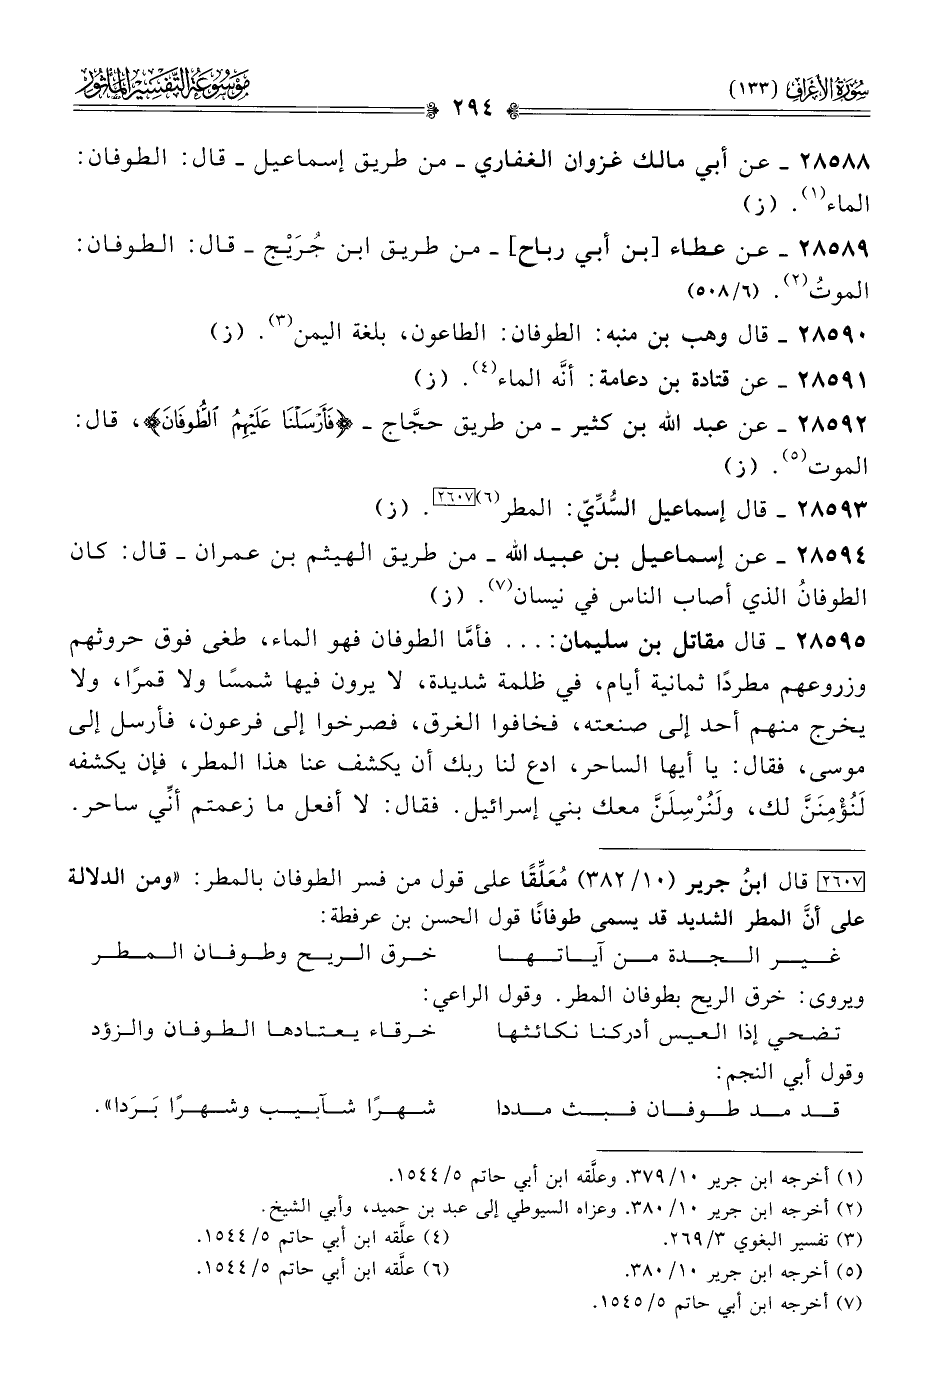 سُورَةُ الأَعْرَافِ (١٣٣)
٢٩٤
مَوْسُوعَة التَّفْسِيرِ المَأْثُورِ
٢٨٥٨٨ ـ عن أبي مالك غزوان الغفاري ـ من طريق إسماعيل ـ قال: الطوفان:
الماء(١). (ز)
٢٨٥٨٩ ـ عن عطاء [بن أبي رباح] ـ من طريق ابن جُرَيْج ـ قال: الطوفان:
الموتُ(٢). (٥٠٨/٦)
٢٨٥٩٠ ـ قال وهب بن منبه: الطوفان: الطاعون، بلغة اليمن(٣). (ز)
٢٨٥٩١ ـ عن قتادة بن دعامة: أنَّه الماء(٤). (ز)
٢٨٥٩٢ ـ عن عبد الله بن كثير ـ من طريق حجَّاج ـ ﴿فَأَرْسَلْنَا عَلَيْهِمُ ٱلطُّوفَانَ﴾، قال:
الموت(٥). (ز)
٢٨٥٩٣ ـ قال إسماعيل السُّدِّيّ: المطر(٦)[٢٦٠٧]. (ز)
٢٨٥٩٤ ـ عن إسماعيل بن عبيد الله ـ من طريق الهيثم بن عمران ـ قال: كان
الطوفانُ الذي أصاب الناس في نيسان(٧). (ز)
٢٨٥٩٥ ـ قال مقاتل بن سليمان: ... فأمَّا الطوفان فهو الماء، طغى فوق حروثهم
وزروعهم مطردًا ثمانية أيام، في ظلمة شديدة، لا يرون فيها شمسًا ولا قمرًا، ولا
يخرج منهم أحد إلى صنعته، فخافوا الغرق، فصرخوا إلى فرعون، فأرسل إلى
موسى، فقال: يا أيها الساحر، ادع لنا ربك أن يكشف عنا هذا المطر، فإن يكشفه
لَنُؤْمِنَنَّ لك، ولَنُرْسِلَنَّ معك بني إسرائيل. فقال: لا أفعل ما زعمتم أنِّي ساحر.
[٢٦٠٧] قال ابنُ جرير (٣٨٢/١٠) مُعَلِّقًا على قول من فسر الطوفان بالمطر: «ومن الدلالة
على أنَّ المطر الشديد قد يسمى طوفانًا قول الحسن بن عرفطة:
غير الجدة من آياتها خرق الريح وطوفان المطر
ويروى: خرق الريح بطوفان المطر. وقول الراعي:
تضحي إذا العيس أدركنا نكائثها خرقاء يعتادها الطوفان والزؤد
وقول أبي النجم:
قد مد طوفان فبث مددا شهرًا شآبيب وشهرًا بَرَدا».
(١) أخرجه ابن جرير ٣٧٩/١٠. وعلَّقه ابن أبي حاتم ١٥٤٤/٥.
(٢) أخرجه ابن جرير ٣٨٠/١٠. وعزاه السيوطي إلى عبد بن حميد، وأبي الشيخ.
(٣) تفسير البغوي ٢٦٩/٣. (٤) علَّقه ابن أبي حاتم ١٥٤٤/٥.
(٥) أخرجه ابن جرير ٣٨٠/١٠. (٦) علَّقه ابن أبي حاتم ١٥٤٤/٥.
(٧) أخرجه ابن أبي حاتم ١٥٤٥/٥.